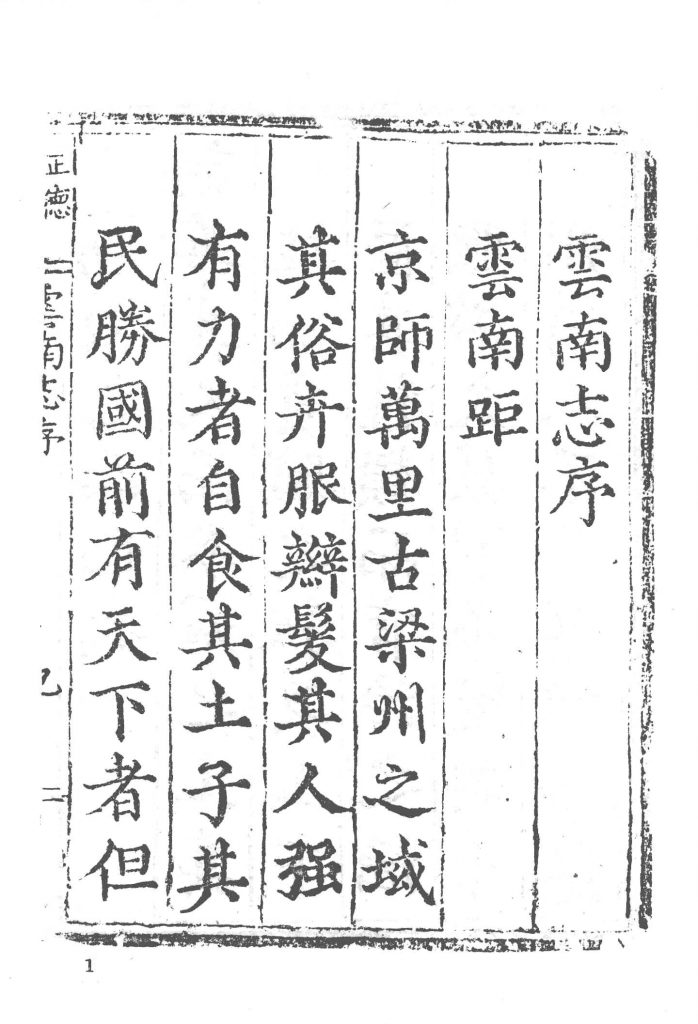 雲南志序
雲南距
京師萬里古梁州之域
其俗卉服辮髮其人强
有力者自食其土子其
民勝國前有天下者但
正德
雲南志序
二
1